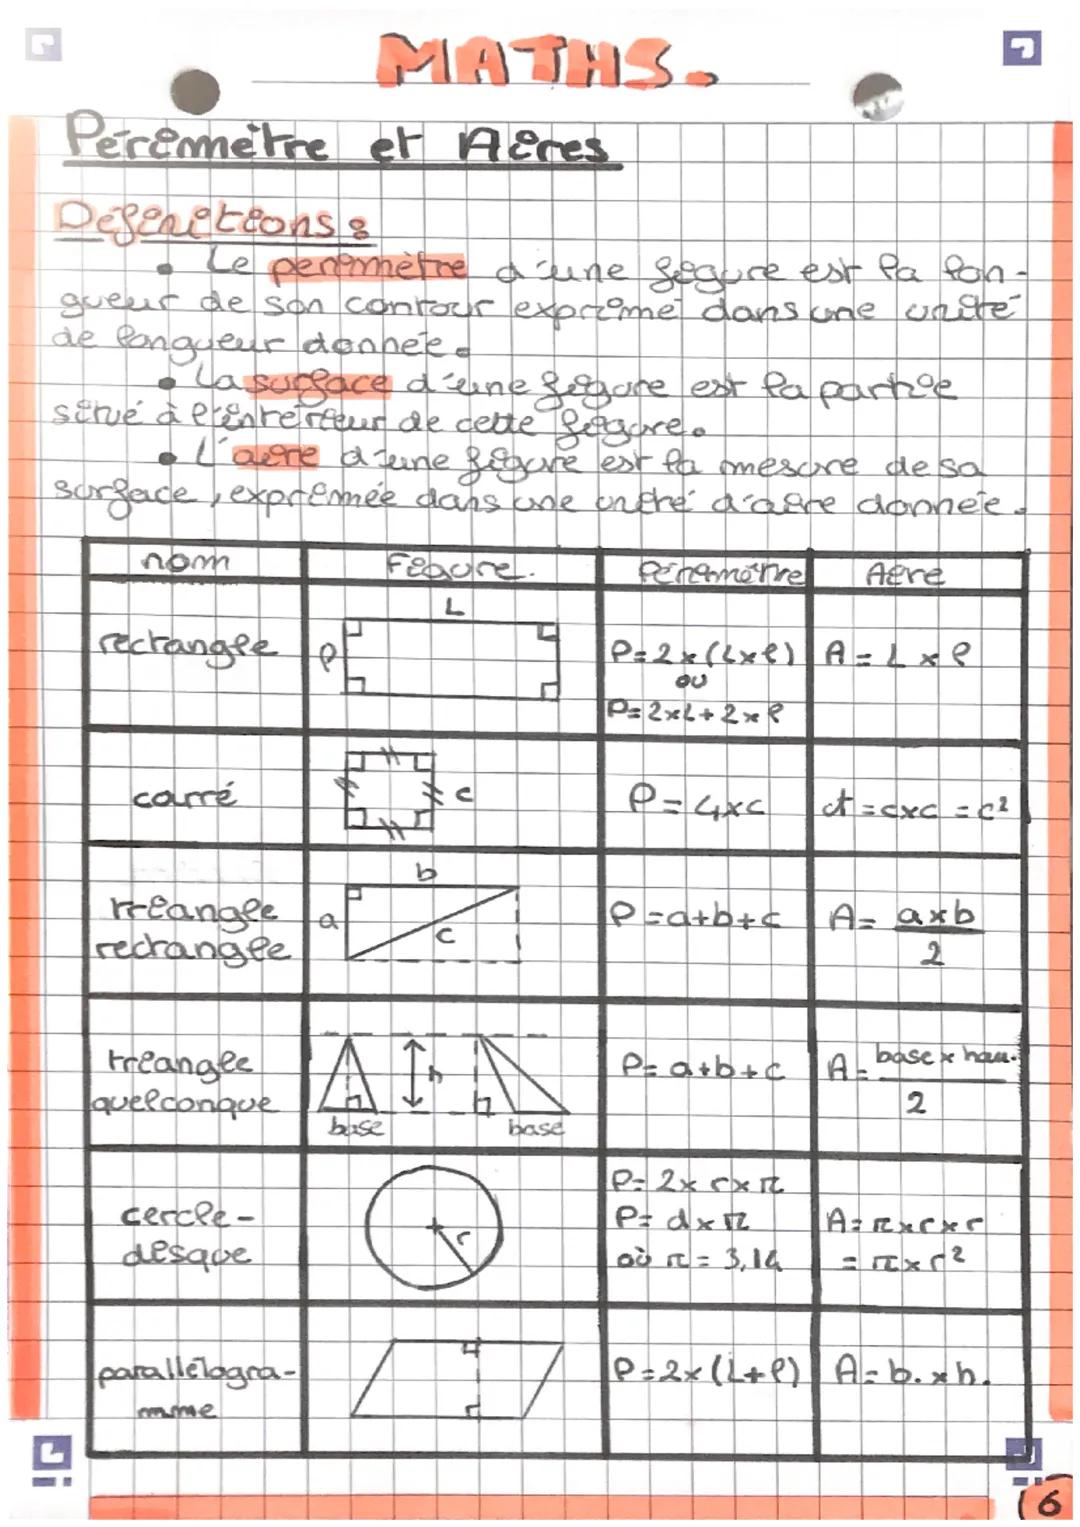 MATHS.
Périmètre et Aires
Définitions :
• Le périmètre d'une figure est la lon-
gueur de son contour exprimé dans une unité
de longueur donnée.
• La surface d'une figure est la partie
situé à l'intérieur de cette figure.
• L'aire d'une figure est la mesure de sa
surface, exprimée dans une unité d'aire donnée.
nom Figure. Périmètre Aire
L
rectangle l P=2x(Lxl) A = L x l
ou
P=2xL+2xl
carré c P=4xc A=cxc=c²
b
triangle a P=a+b+c A= axb
rectangle c 2
triangle h P=a+b+c A= base x hau.
quelconque base base 2
P=2xrxπ
cercle- P=dxπ A=πxrxr
disque r où π=3,14 =πxr²
parallélogra- P=2x(L+l) A=b.xh.
mme
6